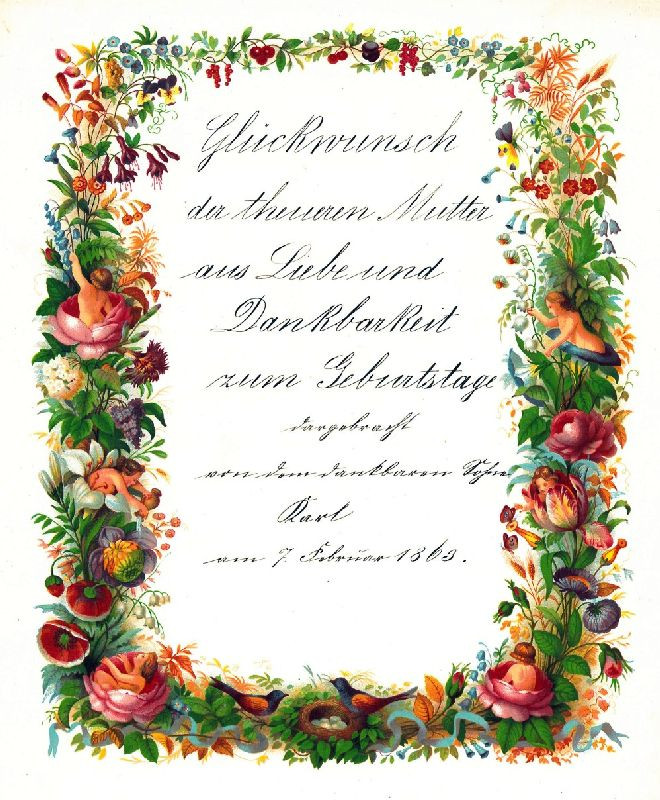 Glückwunsch
der theueren Mutter
aus Liebe und
Dankbarkeit
zum Geburtstage
dargebracht
von dem dankbaren Sohne
Karl
am 7. Februar 1863.